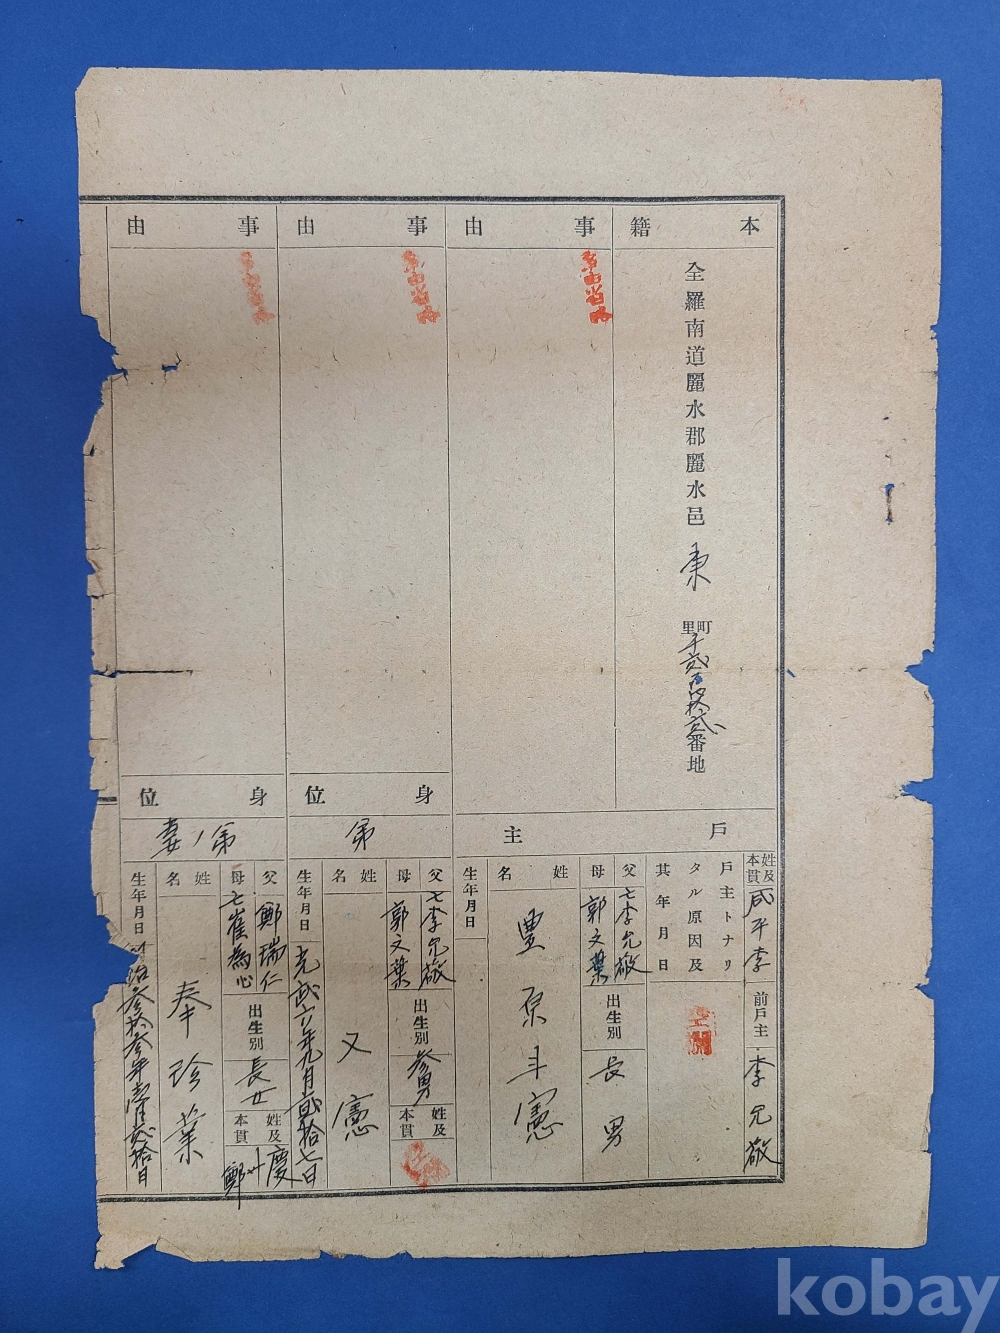 本籍
全羅南道麗水郡麗水邑
東
町
里
番地
姓及
本貫
咸平李
前戶主
李允敬
戶主トナリ
タル原因及
其年月日
事由
事由省略
戶主
父
亡李允敬
母
郭文葉
出生別
長男
姓名
豊原斗憲
生年月日
事由
事由省略
身位
弟
父
亡李允敬
母
郭文葉
出生別
參男
姓及
本貫
姓名
又憲
生年月日
光武六年九月貳拾七日
事由
身位
弟ノ妻
父
鄭瑞仁
母
亡崔為心
出生別
長女
姓及
本貫
慶州鄭
姓名
奉珍葉
生年月日
治參拾參年壹月貳拾日
kobay